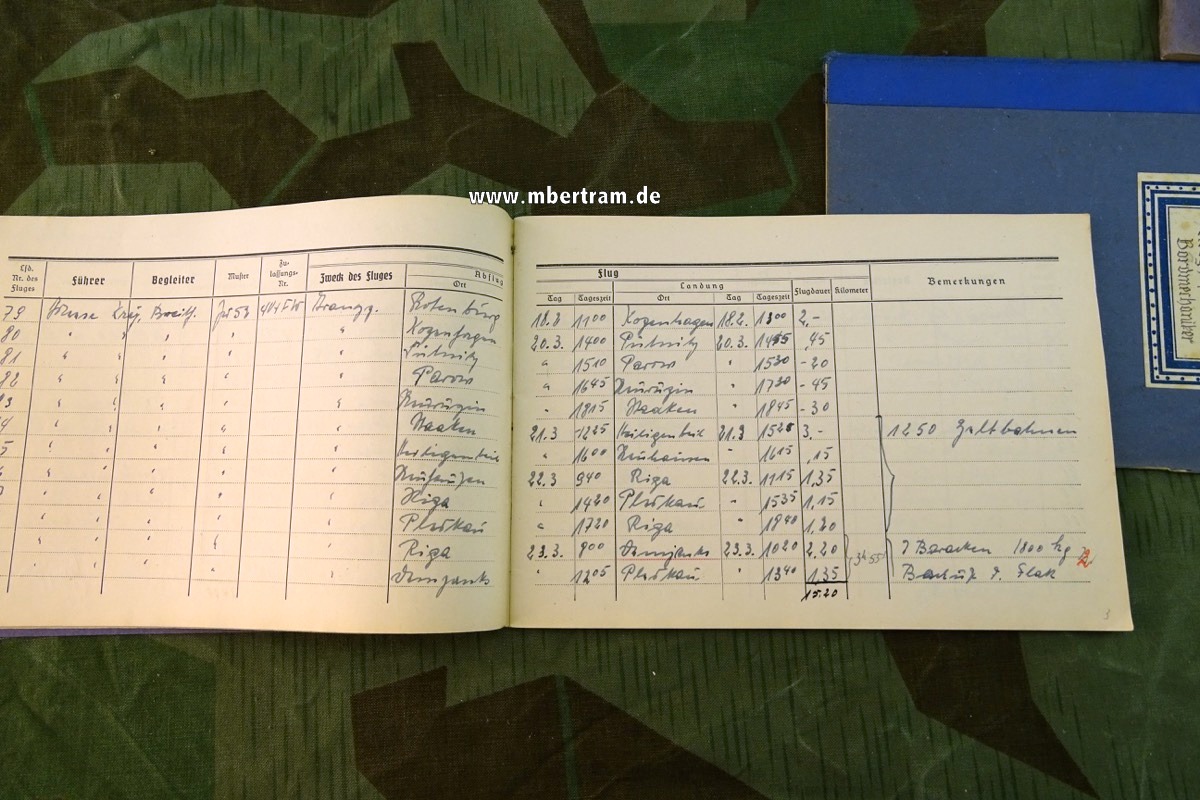 www.mbertram.de
Lfd. Nr. des Fluges Führer Begleiter Muster Zulassungs-Nr. Zweck des Fluges Abflug Ort
79 Rotenburg
80 " " " " Kopenhagen
81 " " " Pütnitz
82 " " " " Parow
" " " " Neurüpin
" " " " Staaken
" " " " Heiligenbeil
" " " Neuhausen
" " " Riga
" " " " Pleskau
" " " " Riga
" " "
Flug
Landung
Tag Tageszeit Ort Tag Tageszeit Flugdauer Kilometer Bemerkungen
18.3 1100 Kopenhagen 18.3. 1300 2,-
20.3. 1400 Pütnitz 20.3. 1455 ,45
" 1510 Parow " 1530 -20
" 1645 Neurüpin " 1730 -45
" 1815 Staaken " 1845 -30
21.3 1225 Heiligenbeil 21.3 1525 3,- 1250 Zeltbahnen
" 1600 Neuhausen " 1615 ,15
22.3 940 Riga 22.3. 1115 1,35
" 1420 Pleskau " 1535 1,15
" 1720 Riga " 1840 1,20
23.3. 800 23.3. 1020 2,20 7 Baracken 1800 kg
" 1205 Pleskau " 1340 1,35 3h 55'
15.20
3
Bordmechaniker